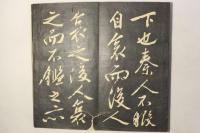 下也秦人不暇
自哀而後人
哀之後人哀
之而不鑑之亦